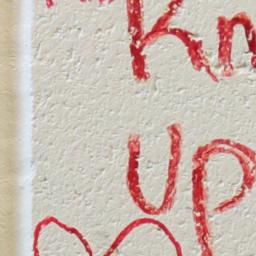 Kn
UP